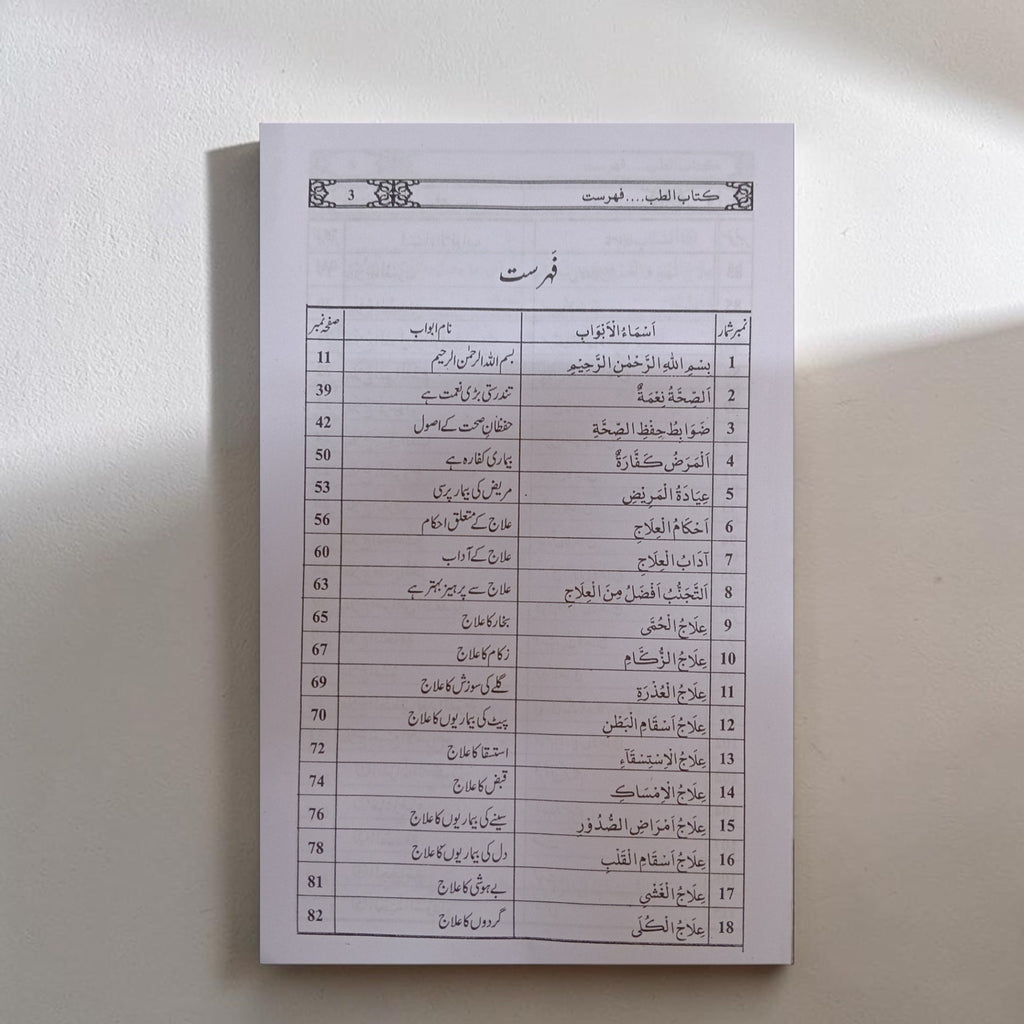 کتاب الطب.... فهرست 3
فَہرست
نمبر شمار اَسْمَاءُ الْاَبْوَاب نام ابواب صفحہ نمبر
1 بِسْمِ اللهِ الرَّحْمٰنِ الرَّحِيْمِ بسم اللہ الرحمٰن الرحیم 11
2 اَلصِّحَّةُ نِعْمَةٌ تندرستی بڑی نعمت ہے 39
3 ضَوَابِطُ حِفْظِ الصِّحَّةِ حفظانِ صحت کے اصول 42
4 اَلْمَرَضُ كَفَّارَةٌ بیماری کفارہ ہے 50
5 عِيَادَةُ الْمَرِيْضِ مریض کی بیمار پرسی 53
6 اَحْكَامُ الْعِلَاجِ علاج کے متعلق احکام 56
7 آدَابُ الْعِلَاجِ علاج کے آداب 60
8 اَلتَّجَنُّبُ اَفْضَلُ مِنَ الْعِلَاجِ علاج سے پرہیز بہتر ہے 63
9 عِلَاجُ الْحُمَّى بخار کا علاج 65
10 عِلَاجُ الزُّكَّامِ زکام کا علاج 67
11 عِلَاجُ الْعُذْرَةِ گلے کی سوزش کا علاج 69
12 عِلَاجُ اَسْقَامِ الْبَطْنِ پیٹ کی بیماریوں کا علاج 70
13 عِلَاجُ الْاِسْتِسْقَآءِ استسقا کا علاج 72
14 عِلَاجُ الْاِمْسَاكِ قبض کا علاج 74
15 عِلَاجُ اَمْرَاضِ الصُّدُوْرِ سینے کی بیماریوں کا علاج 76
16 عِلَاجُ اَسْقَامِ الْقَلْبِ دل کی بیماریوں کا علاج 78
17 عِلَاجُ الْغَشْيِ بے ہوشی کا علاج 81
18 عِلَاجُ الْكُلَى گردوں کا علاج 82